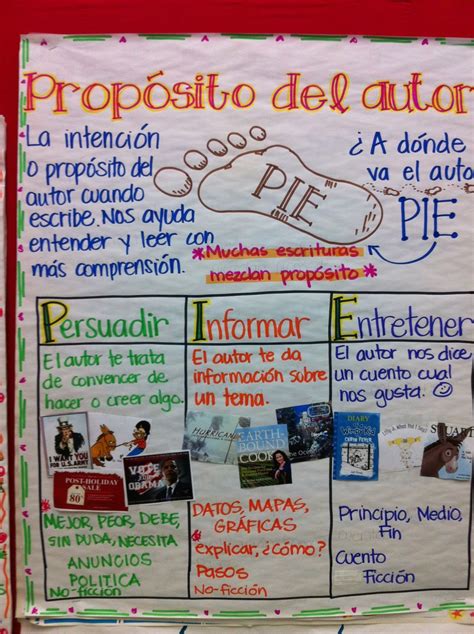 Propósito del autor
La intención
o propósito del
autor cuando
escribe. Nos ayuda
entender y leer con
más comprensión.
PIE
¿A dónde
va el auto
PIE
*Muchas escrituras
mezclan propósito*
Persuadir
El autor te trata
de convencer de
hacer o creer algo.
I WANT YOU
FOR U.S. ARMY
VOTE
OBAMA
POST-HOLIDAY
SALE
80
MEJOR, PEOR, DEBE,
SIN DUDA, NECESITA
ANUNCIOS
POLITICA
No-ficción
Informar
El autor te da
información sobre
un tema.
HURRICANE
EARTH-
BOUND
COOK
DATOS, MAPAS,
GRÁFICAS
explicar, ¿Cómo?
Pasos
No-ficción
Entretener
El autor nos dice
un cuento cual
nos gusta.
DIARY
Wimpy Kid
CABIN FEVER
STUART
Principio, Medio,
Fin
Cuento
Ficción